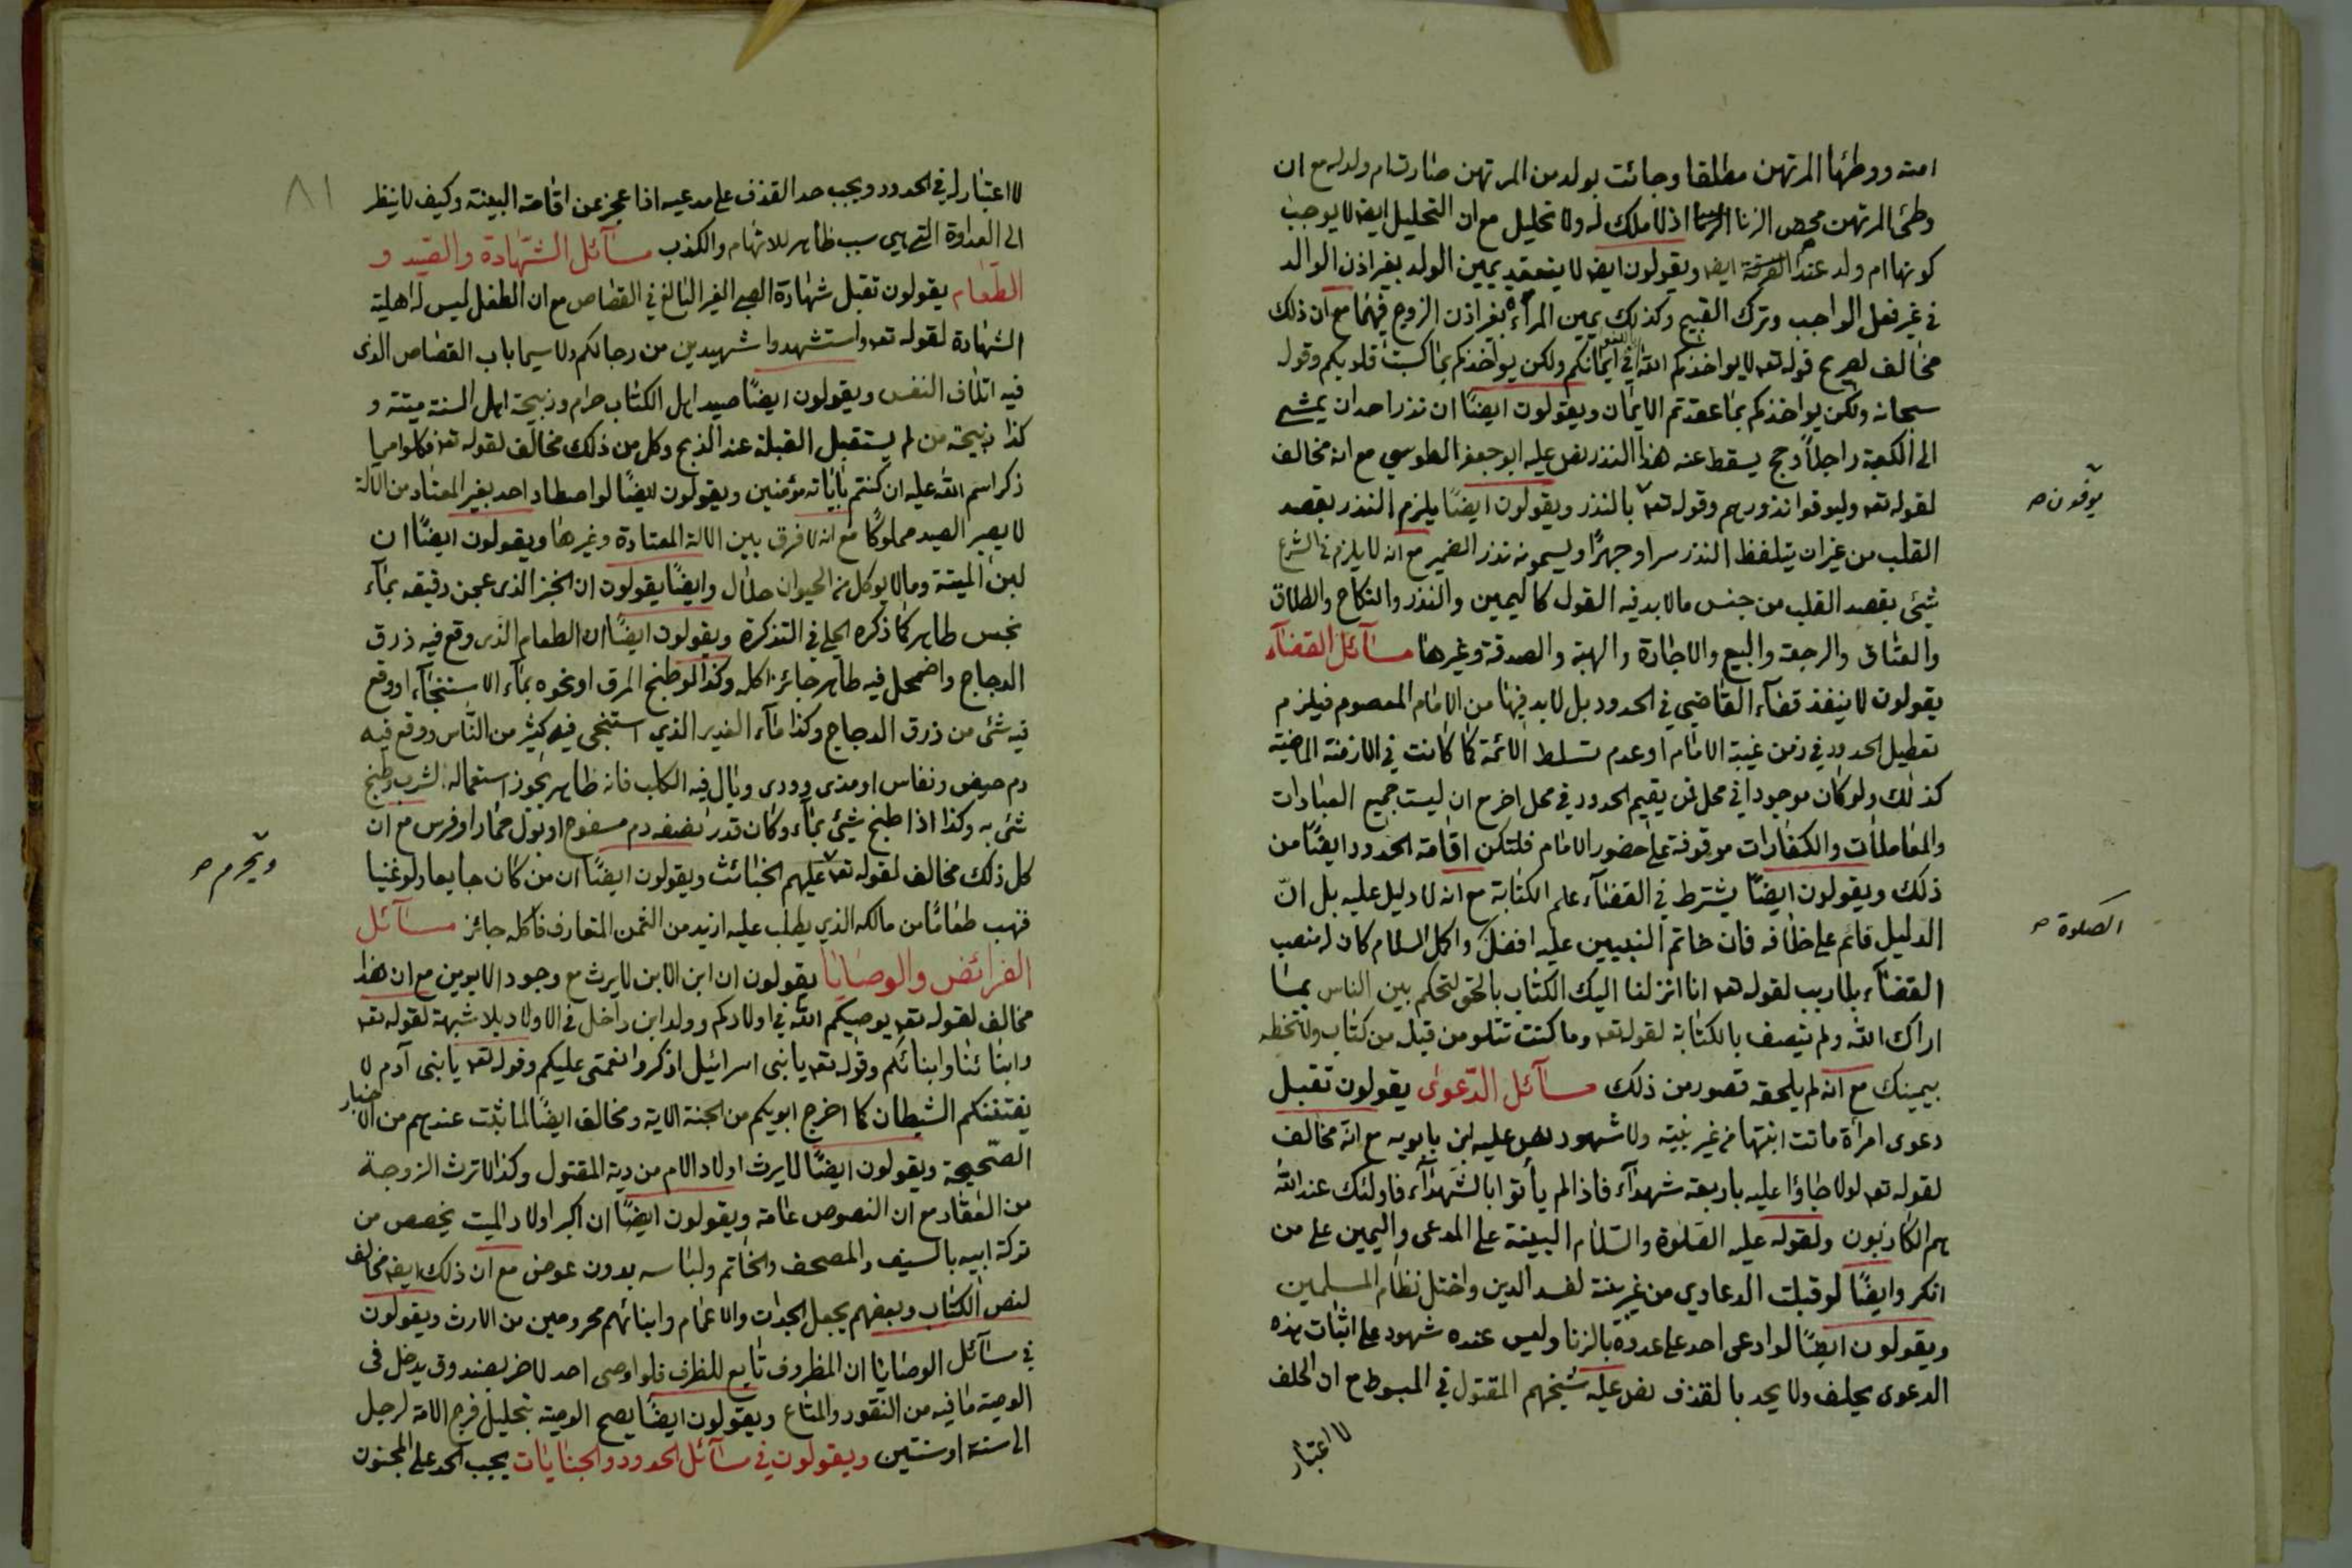 امته ووطئها المرتهن مطلقا وجائت بولد من المرتهن صارت ام ولد له مع ان
وطئ المرتهن محض الزنا اذ لا ملك له ولا تحليل مع ان التحليل ايضا لا يوجب
كونها ام ولد عند ايضا ويقولون ايضا لا ينعقد يمين الولد بغير اذن الوالد
في غير فعل الواجب وترك القبيح وكذلك يمين المرأة بغير اذن الزوج فيهما مع ان ذلك
مخالف لصريح قوله تعه لا يواخذكم الله باللغو في ايمانكم ولكن يواخذكم بما كسبت قلوبكم وقوله
سبحانه ولكن يواخذكم بما عقدتم الايمان ويقولون ايضًا ان نذر احد ان يمشي
الى الكعبة راجلاً وحج يسقط عنه هذا النذر نص عليه ابو جعفر الطوسي مع انه مخالف
لقوله تعه وليوفوا نذورهم وقوله تعه بالنذر ويقولون ايضًا يلزم النذر بقصد
يوفون صح
القلب من غير ان يتلفظ النذر سرا وجهرًا ويسمونه نذر الضمير مع انه لا يلزم في الشرع
شيئ بقصد القلب من جنس ما لا بد فيه القول كاليمين والنذر والنكاح والطلاق
والعتاق والرجعة والبيع والاجارة والهبة والصدقة وغيرها مسآئل القضآء
يقولون لا ينفذ قضآء القاضي في الحدود بل لا بد فيها من الامام المعصوم فيلزم
تعطيل الحدود في زمن غيبة الامام او عدم تسلط الائمة كما كانت في الازمنة الماضية
كذلك ولو كان موجودا في محل فمن يقيم الحدود في محل اخر مع ان ليست جميع العبادات
والمعاملات والكفارات موقوفة على حضور الامام فلتكن اقامة الحدود ايضًا من
ذلك ويقولون ايضًا يشترط في القضآء علم الكتابة مع انه لا دليل عليه بل انّ
الدليل قائم على خلافه فان خاتم النبيين عليه افضل واكمل السلام كان له منصب
الصلوة صح
القضآء بلا ريب لقوله تعه انا انزلنا اليك الكتاب بالحق لتحكم بين الناس بما
اراك الله ولم يتصف بالكتابة لقوله تعه وما كنت تتلو من قبله من كتاب ولا تخطه
بيمينك مع انه لم يلحقه قصور من ذلك مسآئل الدّعوى يقولون تقبل
دعوى امرأة ماتت ابنتها من غير بينة ولا شهود نص عليه ابن بابويه مع انه مخالف
لقوله تعه لولا جاؤا عليه باربعة شهدآء فاذ لم يأتوا بالشهدآء فاولئك عند الله
هم الكاذبون ولقوله عليه الصلوة والسلام البينة على المدعى واليمين على من
انكر وايضًا لو قبلت الدعاوي من غير بينة لفسد الدين واختل نظام المسلمين
ويقولون ايضًا لو ادعى احد على عدوه بالزنا وليس عنده شهود على اثبات هذه
الدعوى يحلف ولا يحد بالقذف نص عليه شيخهم المقتول في المبسوط مع ان الحلف
لا اعتبار
٨١
لا اعتبار له في الحدود ويجب حد القذف على مدعيه اذا عجز عن اقامة البينة وكيف لا ينظر
الى العداوة التي هي سبب ظاهر للاتهام والكذب مسآئل الشهادة والصيد و
الطعام يقولون تقبل شهادة الصبي الغير البالغ في القصاص مع ان الطفل ليس له اهلية
الشهادة لقوله تعه واستشهدوا شهيدين من رجالكم ولا سيما باب القصاص الذى
فيه اتلاف النفس ويقولون ايضًا صيد اهل الكتاب حرام وذبيحة اهل السنة ميتة و
كذا ذبيحة من لم يستقبل القبلة عند الذبح وكل من ذلك مخالف لقوله تعه فكلوا مما
ذكر اسم الله عليه ان كنتم بآياته مؤمنين ويقولون ايضًا لو اصطاد احد بغير المعتاد من الآلة
لا يصير الصيد مملوكًا مع انه لا فرق بين الالة المعتادة وغيرها ويقولون ايضًا ان
لبن الميتة وما لا يوكل من الحيوان حلال وايضًا يقولون ان الخبز الذى عجن دقيقه بمآء
نجس طاهر كما ذكره الحلي في التذكرة ويقولون ايضًا ان الطعام الذى وقع فيه ذرق
الدجاج واضمحل فيه طاهر جائز اكله وكذا لو طبخ المرق او نحوه بمآء الاستنجآء او وقع
فيه شئ من ذرق الدجاج وكذا مآء الغدير الذي استنجى فيه كثير من النّاس ووقع فيه
دم حيض ونفاس او مذى وودى وبال فيه الكلب فانه طاهر يجوز استعماله لشرب وطبخ
شئ به وكذا اذا طبخ شيئ بمآء وكان قدر نصفه دم مسفوح او بول حمار او فرس مع ان
كل ذلك مخالف لقوله تعه عليهم الخبائث ويقولون ايضًا ان من كان جايعا ولو غنيا
ويحرم صح
فنهب طعامًا من مالكه الذي يطلب عليه ازيد من الثمن المتعارف فأكله جائز مسآئل
الفرائض والوصايا يقولون ان ابن الابن لا يرث مع وجود الابوين مع ان هذا
مخالف لقوله تعه يوصيكم الله في اولادكم وولد ابن داخل في الاولاد بلا شبهة لقوله تعه
وابنائنا وابنائكم وقوله تعه يا بنى اسرائيل اذكروا نعمتى عليكم وقوله تعه يا بنى آدم لا
يفتننكم الشيطان كما اخرج ابويكم من الجنة الاية ومخالف ايضًا لما ثبت عندهم من الاخبار
الصّحيحة ويقولون ايضًا لا يرث اولاد الام من دية المقتول وكذا لا ترث الزوجة
من العقار مع ان النصوص عامة ويقولون ايضًا ان اكبر اولاد الميت يخصص من
تركة ابيه بالسيف والمصحف والخاتم ولباسه بدون عوض مع ان ذلك ايضا مخالف
لنص الكتاب وبعضهم يجعل الجدات والاعمام وابنائهم محرومين من الارث ويقولون
في مسآئل الوصايا ان المظروف تابع للظرف فلو اوصى احد لاخر بصندوق يدخل فى
الوصية ما فيه من النقود والمتاع ويقولون ايضًا يصح الوصية بتحليل فرج الامة لرجل
الى سنة او سنتين ويقولون في مسآئل الحدود والجنايات يجب الحد على المجنون